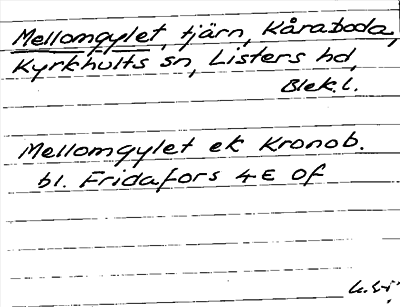 Mellomgylet, tjärn, Kåraboda,
Kyrkhults sn, Listers hd,
Blek.l.
Mellomgylet ek Kronob.
bl. Fridafors 4E 0f